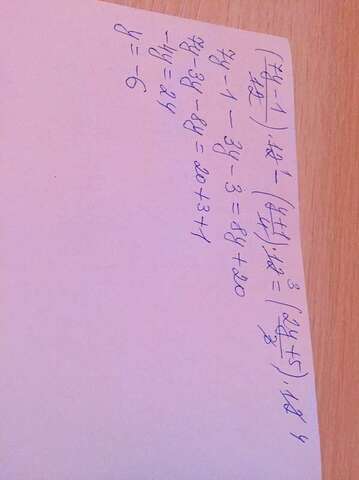 (7y-1/12)·12¹ - (y+1/4)·12³ = (2y+5/3)·12⁴
7y - 1 - 3y - 3 = 8y + 20
7y - 3y - 8y = 20 + 3 + 1
-4y = 24
y = -6